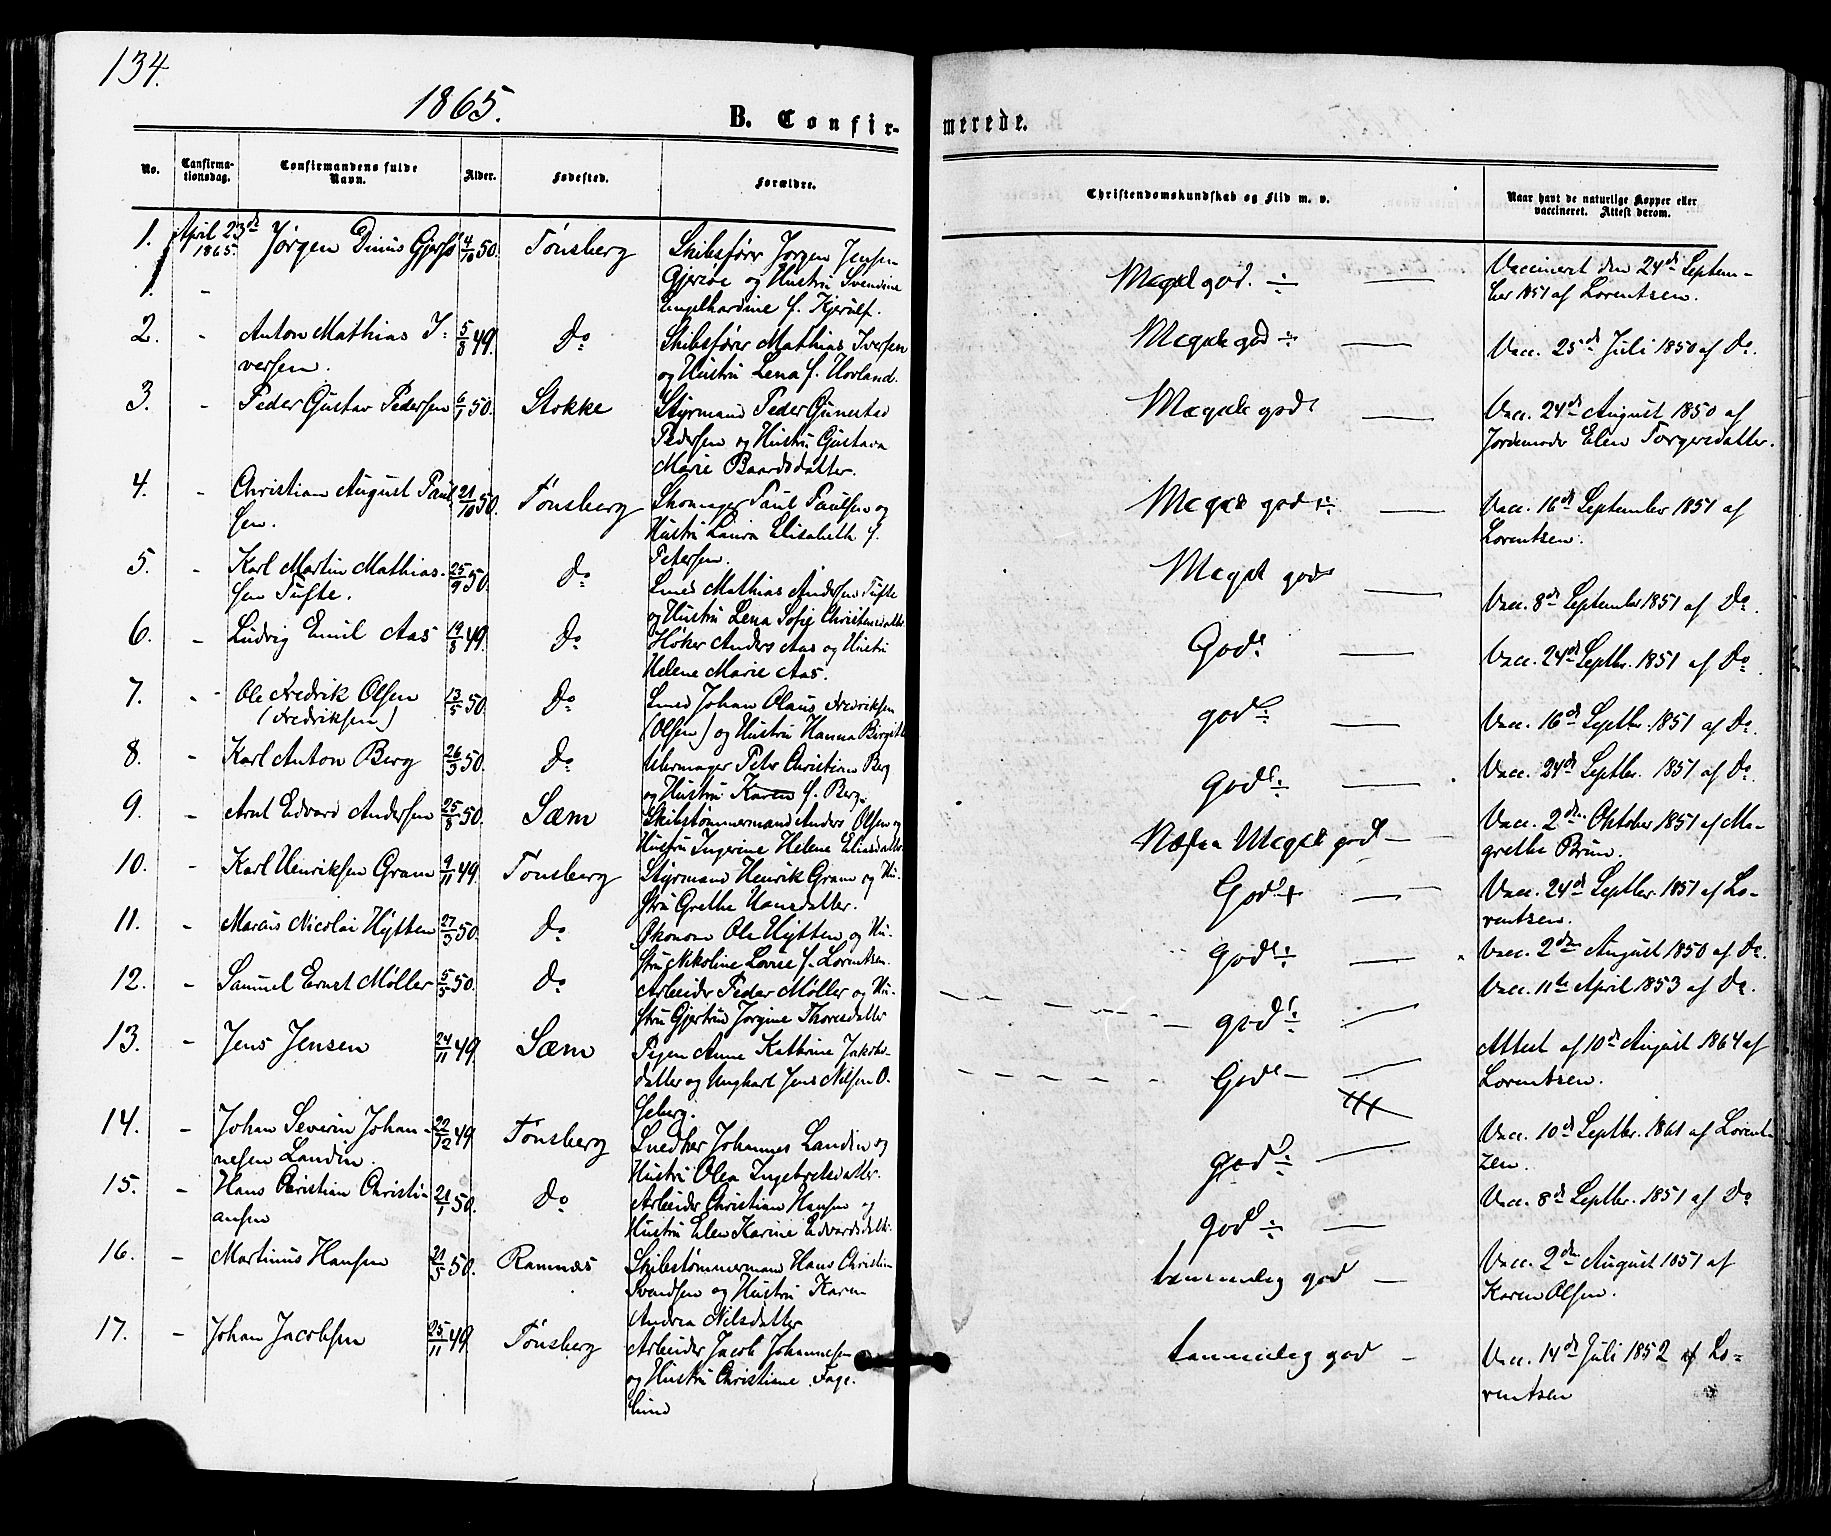 134.
1865.
B. Confir-
merede.
No.
Confirma-
tionsdag.
Confirmandens fulde
Navn.
Alder.
Fødested.
Forældre.
Christendomskundskab og Flid m. v.
Naar havt de naturlige Kopper eller
vaccineret. Attest derom.
1. April 23de 1865. Jørgen Dinus Gjersø 4/10 50. Tønsberg Skibsfører Jørgen Jensen
Gjersøe og Hustru Svendine
Engelhardine f. Kjerulf.
Meget god. ÷ — Vaccineret den 24de Septem-
ber 1851 af Lorentzen.
2. - Anton Mathias I- 5/8 49. Do Skibsfører Mathias Iversen
versen. og Hustru Lena f. Horland.
Meget god ÷ — Vacc. 25de Juli 1850 af Do.
3. - Peder Gustav Pedersen 6/1 50. Stokke Styrmand Peder Gunestad
Pedersen og Hustru Gustava
Marie Baardsdatter.
Meget god — Vacc. 24de August 1850 af
Jordemoder Elen Torgersdatter.
4. - Christian August Paul- 21/10 50. Tønsberg Skomager Paul Paulsen og
sen. Hustru Laura Elisabeth f.
Petersen.
Meget god ÷ — Vacc. 16de September 1851 af
Lorentsen.
5. - Karl Martin Mathias- 25/9 50. Do
sen Tufte. Smed Mathias Andersen Tufte
og Hustru Lena Sofie Christensdatter
Meget god — Vacc. 8de September 1851 af Do.
6. - Ludvig Emil Aas 19/8 49. Do Høker Anders Aas og Hustru
Helene Marie Aas.
God. — Vacc. 24de Septbr. 1851 af Do.
7. - Ole Fredrik Olsen 13/5 50. Do Smed Johan Olaus Fredriksen
(Fredriksen) (Olsen) og Hustru Hanna Birgitte
god ÷ — Vacc. 16de Septbr. 1851 af Do.
8. - Karl Anton Berg 26/3 50. Do Uhrmager Petr Christian Berg
og Hustru Karen f. Berg.
god ÷ — Vacc. 24de Septbr. 1851 af Do
9. - Arnt Edvard Andersen 25/8 50. Sæm Skibstømmermand Anders Olsen og
Hustru Ingerine Helene Eliasdatter
Næsten Meget god — Vacc. 2den Oktober 1851 af Ma-
grethe Brun.
10. - Karl Henriksen Gram 9/11 49. Tønsberg Styrmand Henrik Gram og Hu-
stru Grethe Hansdatter.
God + — Vacc. 24de Septbr. 1851 af Lo-
rentsen.
11. - Marius Nicolai Hytten 27/3 50. Do Økonom Ole Hytten og Hu-
stru Nikoline Lovise f. Lorentsen.
god ÷ — Vacc. 2den August 1850 af Do.
12. - Samuel Ernst Møller 5/5 50. Do Arbeider Peder Møller og Hu-
stru Gjertru Jørgine Thoresdatter
god ÷ — Vacc. 11te April 1853 af Do.
13. - Jens Jensen 24/11 49. Sæm Pigen Anne Kathrine Jakobs-
datter og Ungkarl Jens Nilsen O-
seberg.
God — — Attest af 10de August 1864 af
Lorentzen.
14. - Johan Severin Johan- 22/12 49. Tønsberg Snedker Johannes Landin og
nesen Landin. Hustru Olea Ingebretsdatter.
god ÷ — Vacc. 10de Septbr. 1861 af Lorent-
zen.
15. - Hans Christian Christi- 21/1 50. Do Arbeider Christian Hansen og
ansen Hustru Elen Karine Edvardsdatter
god ÷ — Vacc. 8de Septbr. 1851 af Do
16. - Martinus Hansen 21/5 50. Ramnæs Skibstømmermand Hans Christian
Svendsen og Hustru Karen
Andrea Nilsdatter
temmelig god — Vacc. 2den August 1851 af
Karen Olsen.
17. - Johan Jacobsen 25/11 49. Tønsberg Arbeider Jacob Johannesen
og Hustru Christiane Fage-
lund
temmelig god — Vacc. 14de Juli 1852 af Lo-
rentsen